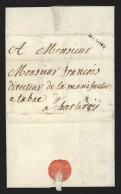 A Monsieur
Monsieur françois
directeur de la manufactur
a tabac de
a Charleroy